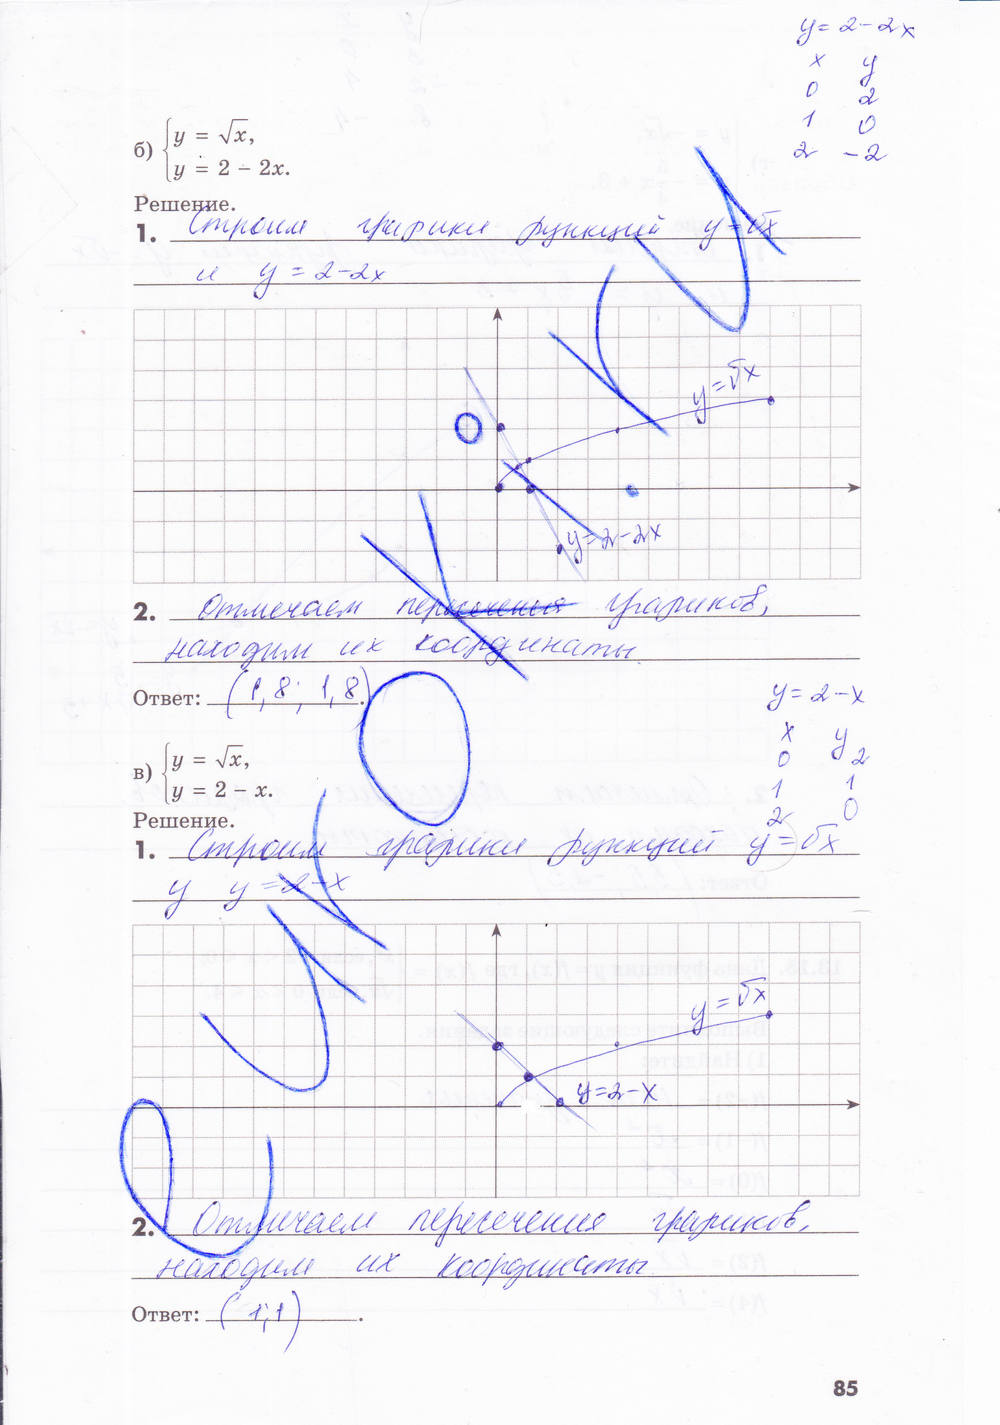 y = 2 - 2x
x y
0 2
1 0
2 -2
б) y = √x,
y = 2 - 2x.
Решение.
1. Строим графики функций y = √x
и y = 2 - 2x
y = √x
y = 2 - 2x
2. Отмечаем графиков,
находим их координаты.
Ответ: (1,8; 1,8).
y = 2 - x
x y
0 2
1 1
2 0
в) y = √x,
y = 2 - x.
Решение.
1. Строим графики функций y = √x
y y = 2 - x
y = √x
y = 2 - x
2. Отмечаем пересечения графиков,
находим их координаты
Ответ: (1;1).
85